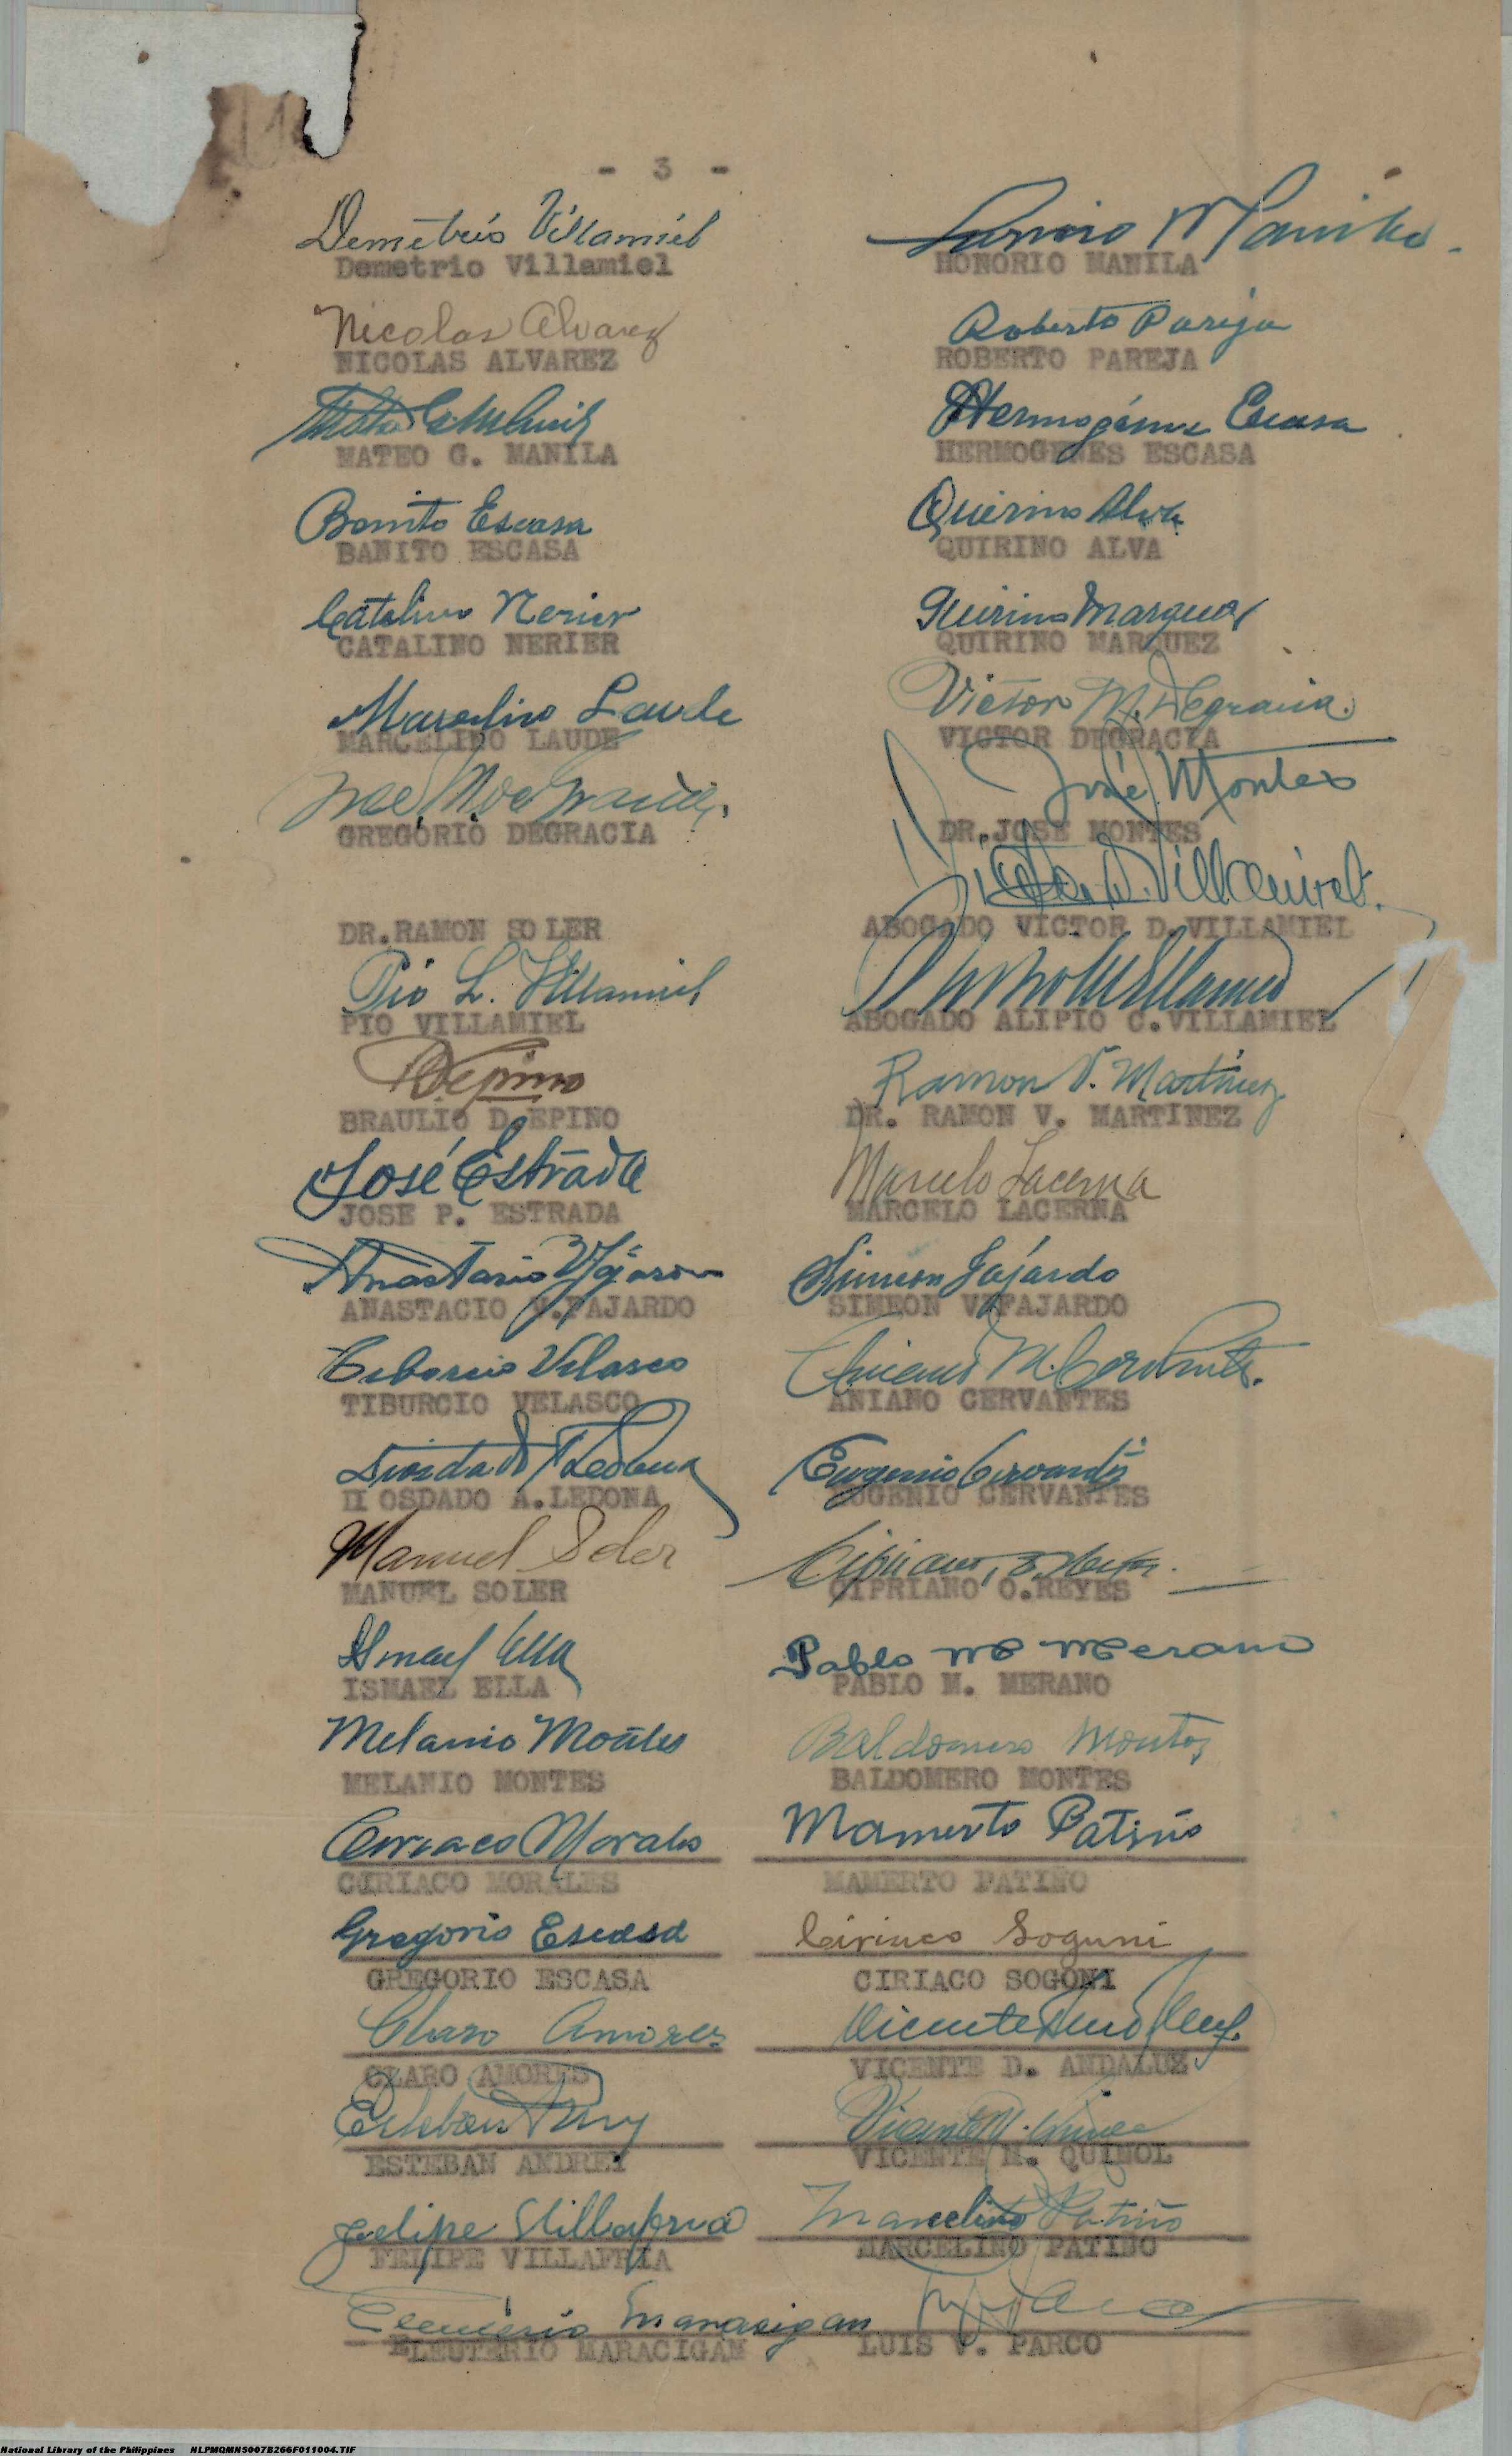 - 3 -
Demetrio Villamiel
Demetrio Villamiel
Honorio Manila
HONORIO MANILA
Nicolas Alvarez
NICOLAS ALVAREZ
Roberto Pareja
ROBERTO PAREJA
MATEO G. MANILA
Hermogénes Escasa
HERMOGENES ESCASA
Benito Escasa
BANITO ESCASA
Quirino Alva
QUIRINO ALVA
Catalino Nerier
CATALINO NERIER
Quirino Marquez
QUIRINO MARQUEZ
Marcelino Laude
MARCELINO LAUDE
Victor M. Degracia
VICTOR DEGRACIA
GREGORIO DEGRACIA
José Montes
DR. JOSE MONTES
DR. RAMON SOLER
Victor D. Villamiel
ABOGADO VICTOR D. VILLAMIEL
Pio L. Villamiel
PIO VILLAMIEL
ABOGADO ALIPIO C. VILLAMIEL
BDEpino
BRAULIO D. EPINO
Ramon V. Martinez
DR. RAMON V. MARTINEZ
José Estrada
JOSE P. ESTRADA
Marcelo Lacerna
MARCELO LACERNA
Anastacio V. Fajardo
ANASTACIO V. FAJARDO
Simeon Fajardo
SIMEON V. FAJARDO
Teborcio Velasco
TIBURCIO VELASCO
Aniano M. Cervantes
ANIANO CERVANTES
Diosdado A Ledona
DIOSDADO A. LEDONA
Eugenio Cervantes
EUGENIO CERVANTES
Manuel Soler
MANUEL SOLER
Cipriano O. Reyes
CIPRIANO O. REYES
Ismael Ella
ISMAEL ELLA
Pablo M Merano
PABLO M. MERANO
Melanio Montes
MELANIO MONTES
Baldomero Montes
BALDOMERO MONTES
Ciriaco Morales
CIRIACO MORALES
Mamerto Patiño
MAMERTO PATIÑO
Gregorio Escasa
GREGORIO ESCASA
Ciriaco Soguni
CIRIACO SOGONI
Claro Amores
CLARO AMORES
Vicente Andaluz
VICENTE D. ANDALUZ
Esteban Andrey
ESTEBAN ANDREY
Vicente M. Quinol
VICENTE M. QUINOL
Felipe Villafria
FELIPE VILLAFRIA
Marcelino Patiño
MARCELINO PATIÑO
Eleuterio Maracigan
ELEUTERIO MARACIGAN
LUIS V. PARCO
National Library of the Philippines NLPMQMNS007B266F011004.TIF